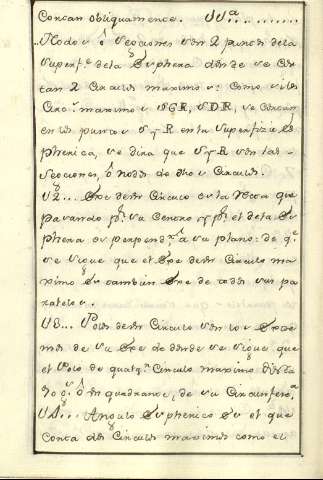 Cortan obliquamente. VVª..........
Nodos ò Secciones son 2 puntos dela
Superf.ᵉ dela Sphera donde se cor
tan 2 Circulos maximos vᵃ Como si los
Circ.ˢ maximos SGR, SDR, se cortan
en los puntos S y R en la Superfizie Es
pherica, se dira que S y R son las
Secciones, ò nodos de dhos Circulos.
V2... Exe de un Circulo es la Recta que
pasando p.ʳ su Centro y p.ʳ el dela Es
phera es perpend.ʳ a su plano: de q.ᵉ
se sigue que el Exe de un Circulo ma
ximo es tambien Exe de todos sus pa
ralelos.
V3... Polos de un Circulo son los Extre
mos de su Exe de donde se sigue que
el Polo de qualq.ʳ Circulo maximo dista
90 g.ˢ ò un quadrante, de su Circunferª
V4... Angulo Spherico es el que
Corta dos Circulos maximos como el